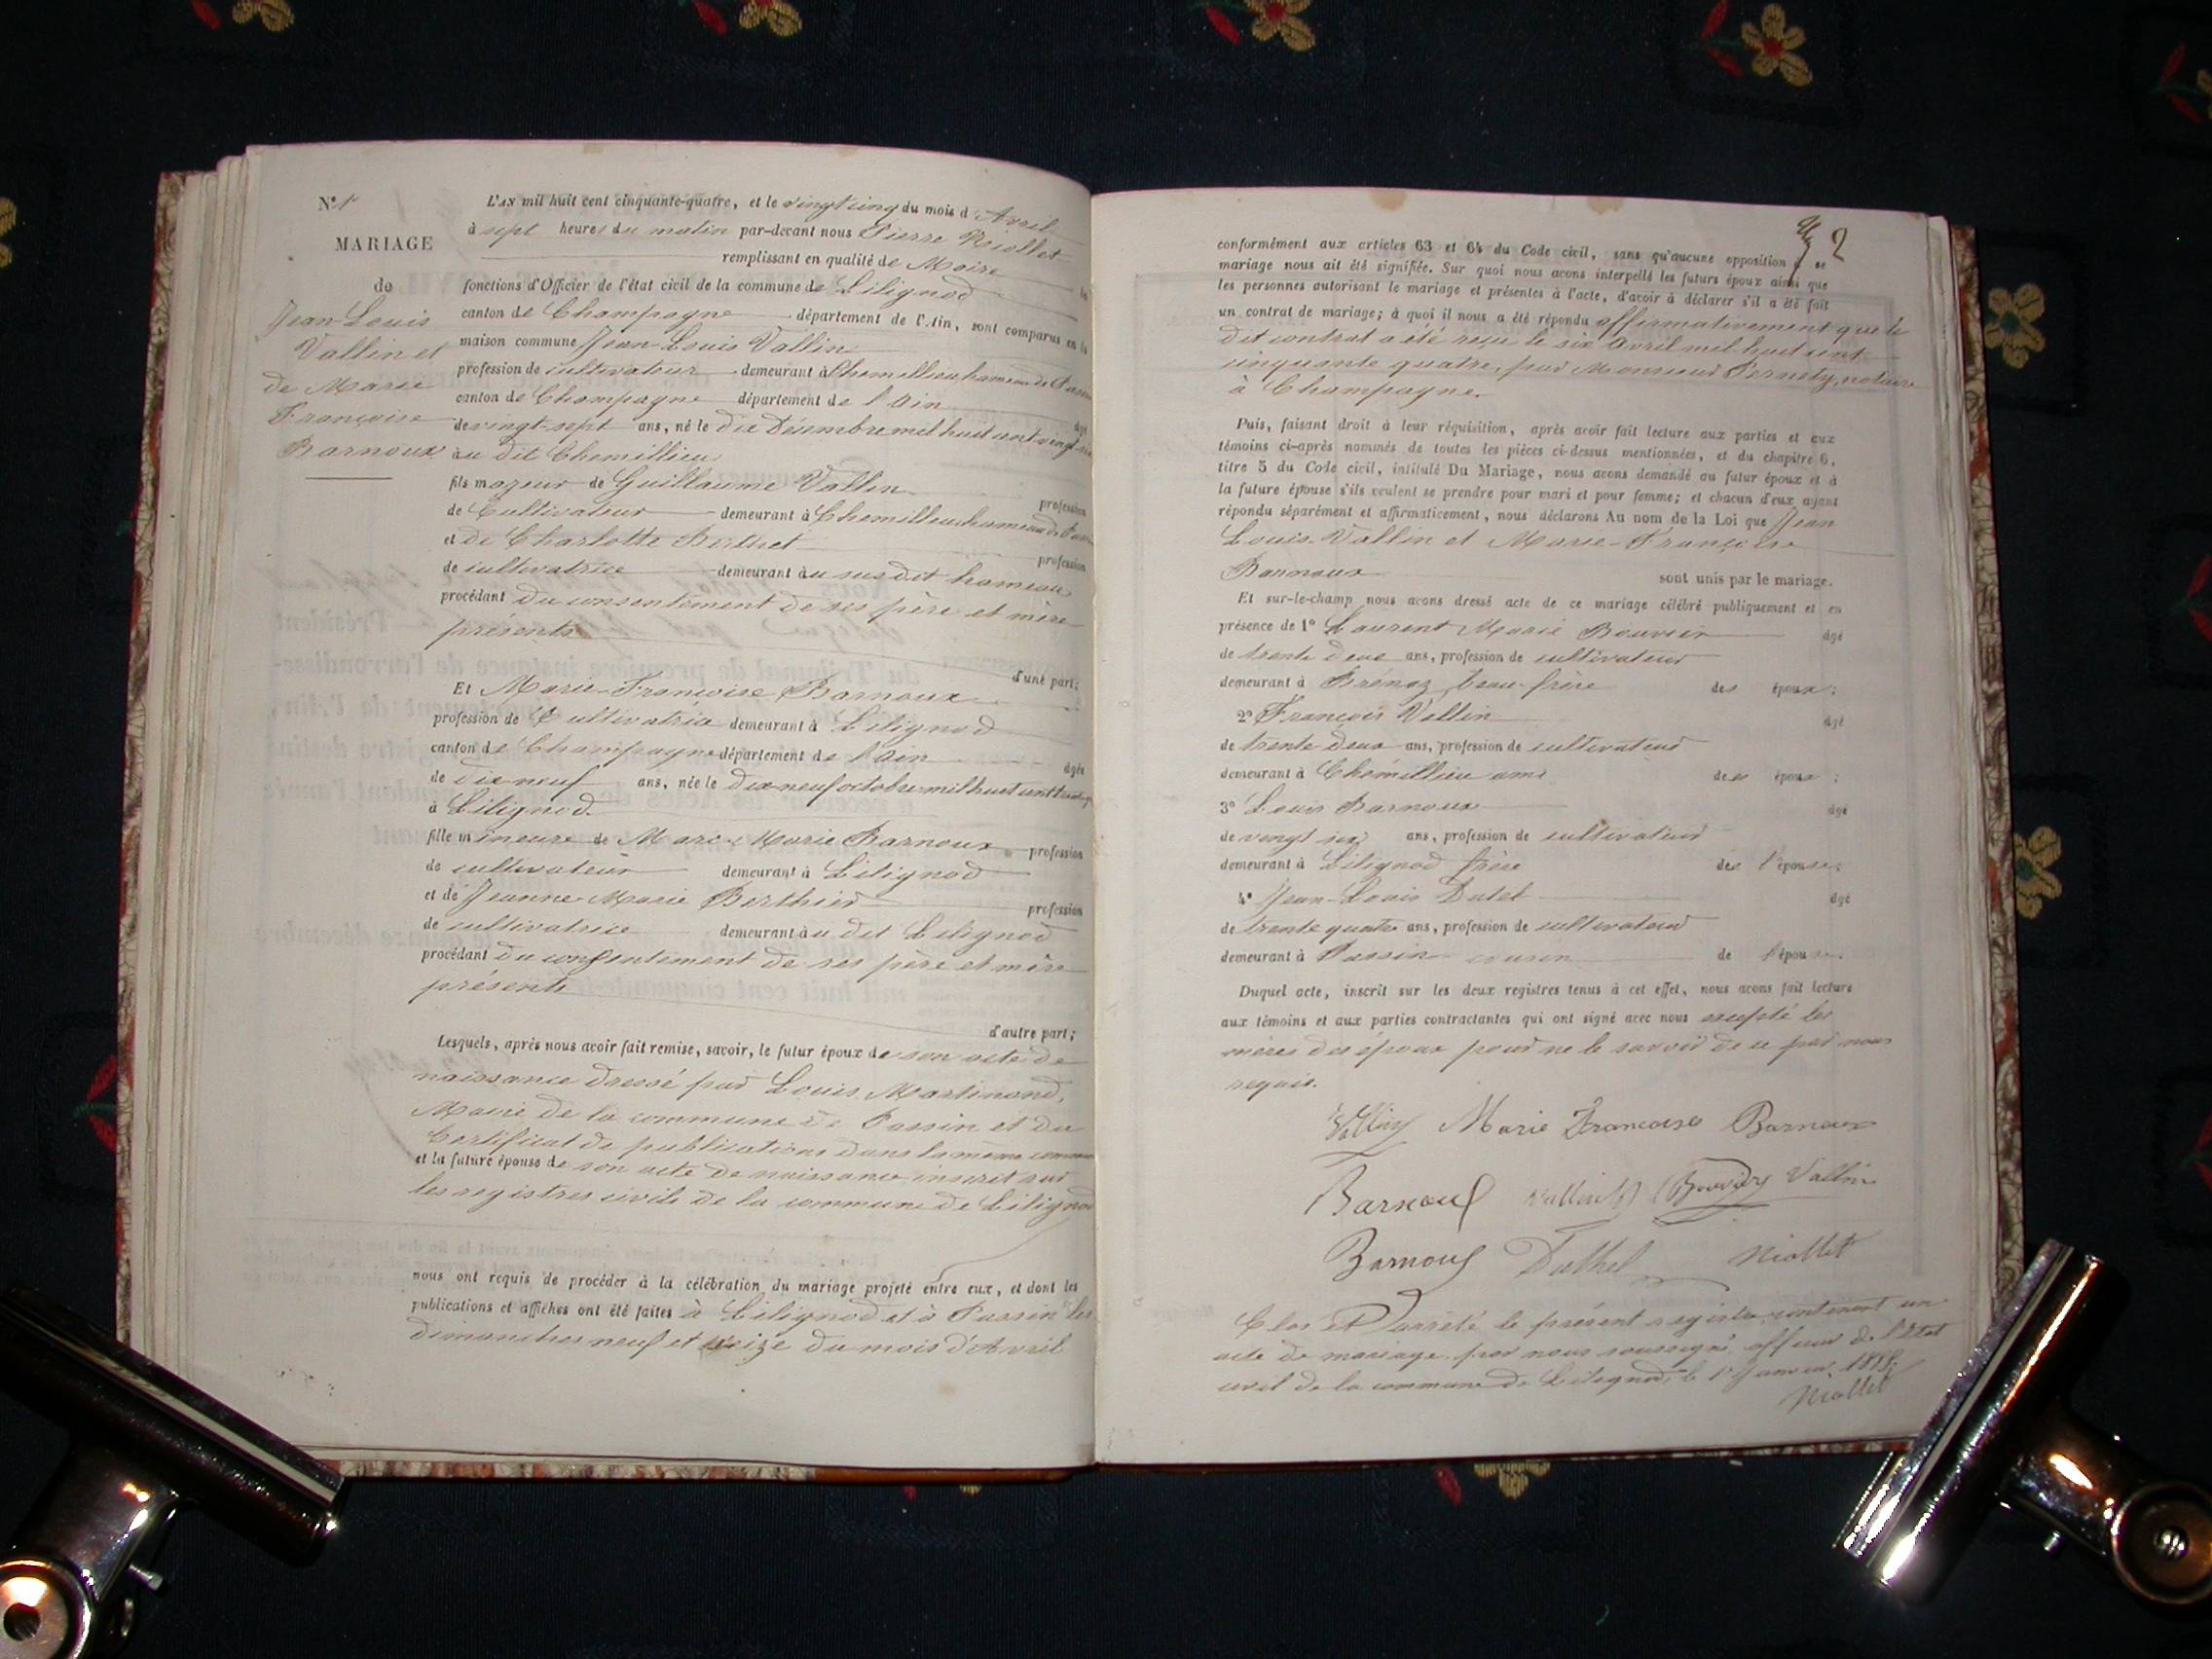 N° 1er
MARIAGE
de
Jean-Louis
Vallin et
de Marie
Françoise
Barnoux
L'AN mil huit cent cinquante-quatre, et le vingt cinq du mois d'Avril
à sept heures du matin par-devant nous Pierre Niollet
remplissant en qualité de Maire les
fonctions d'Officier de l'état civil de la commune de Lilignod
canton de Champagne département de l'Ain, sont comparus en la
maison commune Jean Louis Vallin
profession de cultivateur demeurant à Chemillieu hameau de Passin
canton de Champagne département de l'Ain âgé
de vingt-sept ans, né le dix Décembre mil huit cent vingt-six
au dit Chemillieu
fils majeur de Guillaume Vallin profession
de Cultivateur demeurant à Chemillieu hameau de Passin
et de Charlotte Berthet profession
de cultivatrice demeurant au susdit hameau
procédant du consentement de ses père et mère
présents
d'une part;
Et Marie-Françoise Barnoux
profession de Cultivatrice demeurant à Lilignod
canton de Champagne département de l'Ain âgée
de dix neuf ans, née le dix neuf octobre mil huit cent
à Lilignod.
fille mineure de Marc-Marie Barnoux profession
de cultivateur demeurant à Lilignod
et de Jeanne Marie Berthier profession
de cultivatrice demeurant au dit Lilignod
procédant du consentement de ses père et mère
présents
d'autre part;
Lesquels, après nous avoir fait remise, savoir, le futur époux de son acte de
naissance dressé par Louis Martinand,
Maire de la commune de Passin et du
Certificat de publications dans la même commune
et la future épouse de son acte de naissance inscrit sur
les registres civils de la commune de Lilignod
nous ont requis de procéder à la célébration du mariage projeté entre eux, et dont les
publications et affiches ont été faites à Lilignod et à Passin les
dimanches neuf et seize du mois d'Avril
2
conformément aux articles 63 et 64 du Code civil, sans qu'aucune opposition à ce
mariage nous ait été signifiée. Sur quoi nous avons interpellé les futurs époux ainsi que
les personnes autorisant le mariage et présentes à l'acte, d'avoir à déclarer s'il a été fait
un contrat de mariage; à quoi il nous a été répondu affirmativement que le
dit contrat a été reçu le six Avril mil huit cent
cinquante quatre, par Monsieur Pernety, notaire
à Champagne.
Puis, faisant droit à leur réquisition, après avoir fait lecture aux parties et aux
témoins ci-après nommés de toutes les pièces ci-dessus mentionnées, et du chapitre 6,
titre 5 du Code civil, intitulé Du Mariage, nous avons demandé au futur époux et à
la future épouse s'ils veulent se prendre pour mari et pour femme; et chacun d'eux ayant
répondu séparément et affirmativement, nous déclarons Au nom de la Loi que Jean
Louis Vallin et Marie-Françoise
Barnoux sont unis par le mariage.
Et sur-le-champ nous avons dressé acte de ce mariage célébré publiquement et en
présence de 1° Laurent Marie Bouvier âgé
de trente deux ans, profession de cultivateur
demeurant à Brénaz, beau-frère des époux;
2° François Vallin âgé
de trente deux ans, profession de cultivateur
demeurant à Chemillieu ami des époux;
3° Louis Barnoux âgé
de vingt six ans, profession de cultivateur
demeurant à Lilignod frère de l'épouse;
4° Jean-Louis Dutel âgé
de trente quatre ans, profession de cultivateur
demeurant à Passin cousin de l'épouse.
Duquel acte, inscrit sur les deux registres tenus à cet effet, nous avons fait lecture
aux témoins et aux parties contractantes qui ont signé avec nous excepté les
mères des époux pour ne le savoir de ce par nous
requis.
Vallin Marie Francoise Barnoux
Barnoux Vallin Bouvier Vallin
Barnoux Duthel Niollet
Clos et arrêté le présent registre contenant un
acte de mariage par nous soussigné, officier de l'état
civil de la commune de Lilignod, le 1er Janvier 1855
Niollet